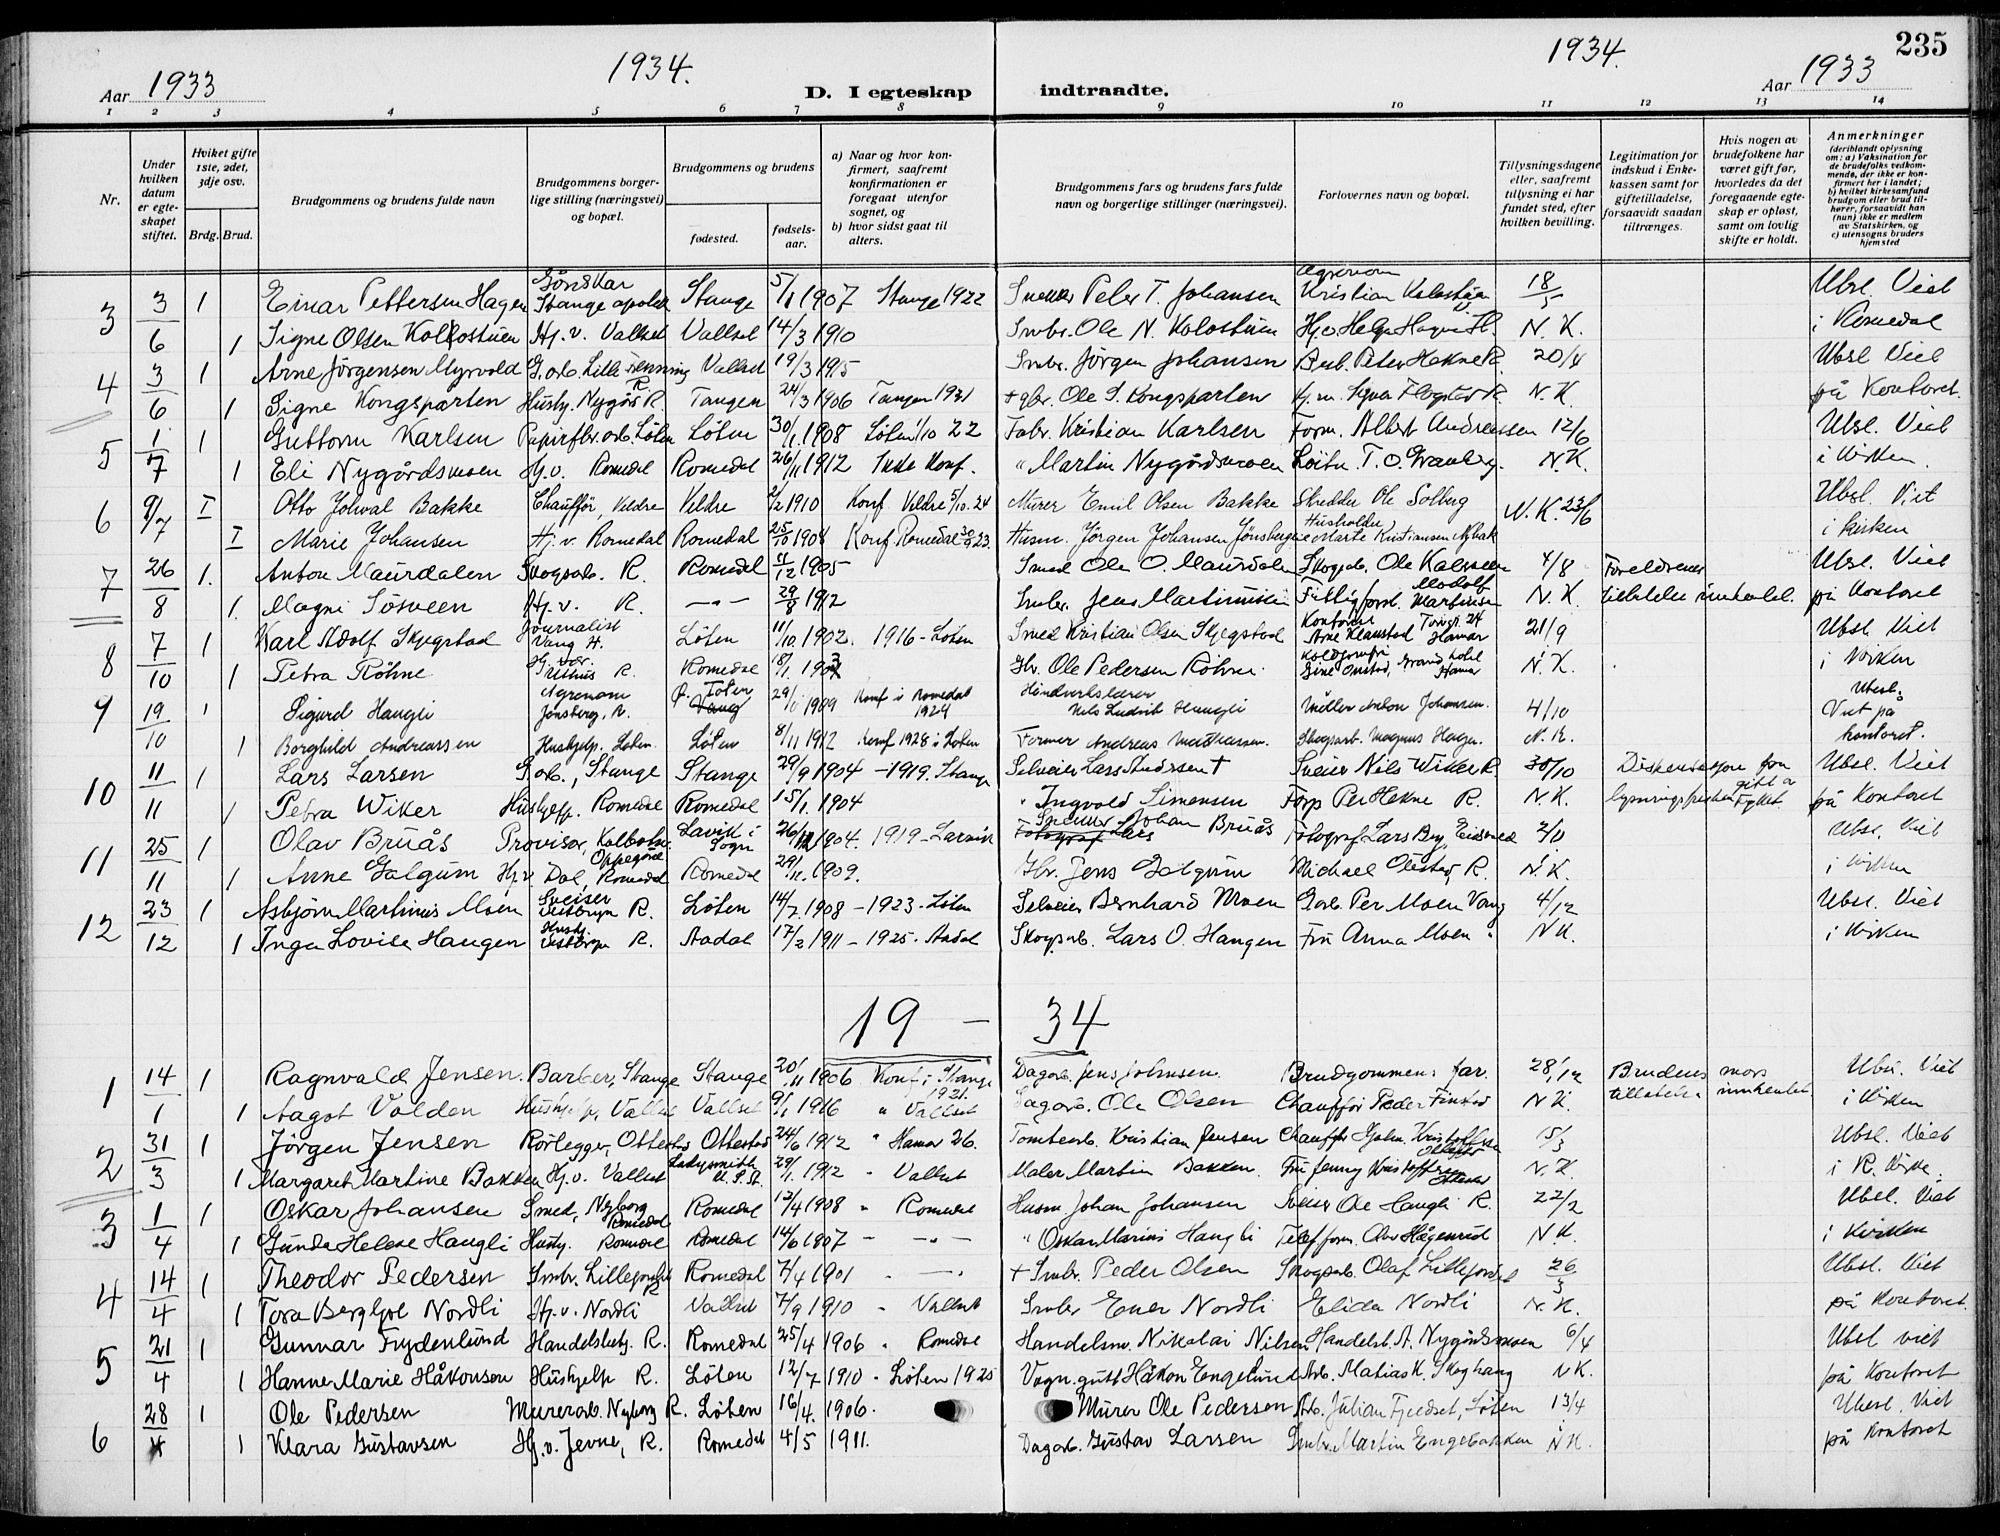 Aar 1933
1934.
D. I egteskap indtraadte.
1934.
Aar 1933
235
1 2 3 4 5 6 7 8 9 10 11 12 13 14
Nr.
Under hvilken datum er egteskapet stiftet.
Hviket gifte 1ste, 2det, 3dje osv.
Brdg. Brud.
Brudgommens og brudens fulde navn
Brudgommens borgerlige stilling (næringsvei) og bopæl.
Brudgommens og brudens
fødested.
fødselsaar.
a) Naar og hvor konfirmert, saafremt konfirmationen er foregaat utenfor sognet, og
b) hvor sidst gaat til alters.
Brudgommens fars og brudens fars fulde navn og borgerlige stillinger (næringsvei).
Forlovernes navn og bopæl.
Tillysningsdagene eller, saafremt tillysning ei har fundet sted, efter hvilken bevilling.
Legitimation for indskud i Enkekassen samt for giftetilladelse, forsaavidt saadan tiltrænges.
Hvis nogen av brudefolkene har været gift før, hvorledes da det foregaaende egteskap er opløst, samt om lovlig skifte er holdt.
Anmerkninger (deriblandt oplysning om: a) Vaksination for de brudefolks vedkommende, der ikke er konfirmert her i landet; b) hvilket kirkesamfund brudgom eller brud tilhører, forsaavidt han (hun) ikke er medlem av Statskirken, og c) utensogns bruders hjemsted
3 3/6 1 Einar Pettersen Hagen Stange Stange 5/1 1907 Stange 1922 Peter T. Johansen Kristian Kolostuen 18/5 Ubsl. Viet
1 Signe Olsen Kolostuen Hj. v. Vallset Vallset 14/3 1910 Smbr. Ole N. Kolostuen N. K. i Romedal
4 3/6 1 Arne Jörgensen Myrvold Vallset 19/3 1915 Smbr. Jörgen Johansen Peter Hekne R. 20/4 Ubsl Viet
1 Signe Kongsparten Hushj. Nygår R. Tangen 24/3 1906 Tangen 1921 Ole S. Kongsparten N. K. på Kontoret.
5 1/7 1 Guttorm Karlsen Papirfbr. arb. Löten Löten 30/1 1908 Löten 1/10 22 Fabr. Kristian Karlsen Form. Albert Andreassen 12/6 Ubsl. Viet
1 Eli Nygårdsmoen Hj. v. Romedal Romedal 26/11 1912 Ikke Konf. " Martin Nygårdsmoen N. K. i Kirken.
6 9/7 I Otto Johval Bakke Chauffør, Veldre Veldre 2/2 1910 Konf Veldre 5/10. 24 Murer Emil Olsen Bakke Skredder Ole Solberg N. K. 23/6 Ubsl. Viet
I Marie Johansen Hj. v. Romedal Romedal 25/10 1908 Konf Romedal 30/9 23. Husm. Jörgen Johansen Jönsberg Husholder Marte Kristiansen i kirken
7 26/8 1. Anton Maurdalen Skogsarb. R. Romedal 11/12 1905 Smed Ole O. Maurdalen Skogsarb. Ole 4/8 Foreldrenes Ubsl. Viet
1. Magni Sösveen Hj. v. R. -"- 29/8 1912 Smbr. Jens Martinussen Modolf Martinsen N. K. tillatelse innhentet. på Kontoret
8 7/10 1 Karl Adolf Skjegstad Journalist Vang H. Löten 11/10. 1902. 1916 - Löten Smed Kristian Olsen Skjegstad Arne Klaustad Hamar 21/9 Ubsl Viet
1 Petra Röhne R. Romedal 18/1. 1903 Gbr. Ole Pedersen Röhne Grand hotel Hamar N. K. i Kirken
9 19/10 1 Sigurd Haugli Agronom Jønsberg, R. Vang 29/1 1909 Konf i Romedal 1924 Håndverkslærer Nils Ludvik Haugli Møller Anton Johansen. 4/10 Ubesl. Viet på
1 Borghild Andreassen Hushjelp. Løten Løten 8/11 1912 Konf 1928 i Løten Former Andreas Mathiassen. Skogsarb. Magnus Haugen. N. K. kontoret.
10 11/11 1 Lars Larsen G.arb., Stange Stange 29/9 1904 - 1919. Stange Selveier Lars Andersen † Sveier Nils Wiker R 30/10 Dispensasjon fra Ubsl. Viet
1 Petra Wiker Hushjelp. Romedal Romedal 15/1. 1904 " Ingvald Simensen Per Hekne R. N. K. lysningsfristen gitt av Fylket. på Kontoret
11 25/11 1 Olav Bruås Provisor, Kolbotn, Oppegård Lavik i Sogn 26/11 1904. 1919 - Larvik Fotograf Lars Johan Bruås Fotograf Lars Berg, Eidsvold Ubsl. Viet
1 Anne Galgum Hj.v Dal, Romedal Romedal 29/11. 1909. Gbr. Jens Galgum Michael Olestad, R. N. K. i Kirken
12 23/12 1 Asbjørn Martinus Moen Sveiser Vestbryn R. Löten 14/7 1908 - 1923 - Löten Selveier Bernhard Moen Per Moen Vang 4/12 Ubsl. Viet
1 Inga Lovise Haugen Hushj. Vestbryn R. Aadal 17/2 1911 - 1925 - Aadal Skogsarb. Lars O. Haugen Fru Anna Moen " N K. i Kirken
19 - 34
1 14/1 1 Ragnvald Jensen. Barber, Stange Stange 20/11 1906 Konf. i Stange 1921. Dagarb. Jens Johnsen. Brudgommens far. 28/12 Brudens mors Ubs. Viet
1 Aagot Volden Hushjelp, Vallset Vallset 9/1 1916 " Vallset Dagarb. Ole Olsen Chaufför Peder Finstad N K. tillatelse innhentet i Kirken
2 31/3 1 Jörgen Jensen Rörlegger, Ottestad Ottestad 24/6 1912 " Hamar 26. Tomtearb. Kristian Jensen Chauffør Hjalm. Kristoffersen Ottestad 15/3 Ubsl. Viet
1 Margaret Martine Bakken Hj. v. Vallset Ladysmith U. S. A. 29/1. 1912 " Vallset Maler Martin Bakken. Fru Jenny Kristoffersen N. K. i R. Kirke.
3 1/4 1 Oskar Johansen Smed, Nyborg Romedal Romedal 12/4 1908 " Romedal Husm. Johan Johansen Sveier Ole Haugli R. 22/2 Ubsl. Viet
1 Gunda Helene Haugli Hushj. Romedal Romedal 14/6 1907 - -"- " Oskar Marius Haugli Telef. form. Olav Hågenrud N K. i Kirken
4 14/4 1 Theodor Pedersen Smbr. Lillejordet R. Romedal 7/4 1901 " -"- † Smbr. Peder Olsen Skogsarb. Olaf Lillejordet 26/3 Ubsl. Viet
1 Tora Bergljot Nordli Hj. v. Nordli Vallset 7/9 1910 " Vallset Smbr Ener Nordli Elida Nordli N. K. på Kontoret.
5 21/4 1 Gunnar Frydenlund Handelsbetj. R. Romedal 25/4 1906 " Romedal Handelsm. Nikolai Nilsen Handelsb. A. Nygårdsmoen 6/4 Ubsl viet
1 Hanne Marie Håkonsen Hushjelp R. Löten 12/7 1910 " Löten 1925 Vogn.gutt Håkon Engelund Arb. Matias K. Skoghaug N K. på Kontoret
6 28/4 1 Ole Pedersen Murerarb. Nyborg R. Löten 16/4. 1906. Murer Ole Pedersen Arb. Julian Fjeldset, Löten 13/4 Ubesl. Viet
1 Klara Gustavsen Hj. v. Jevne, R. Romedal 4/5 1911. Dagarb. Gustav Larsen Smbr. Martin Engebakken N K. på Kontoret